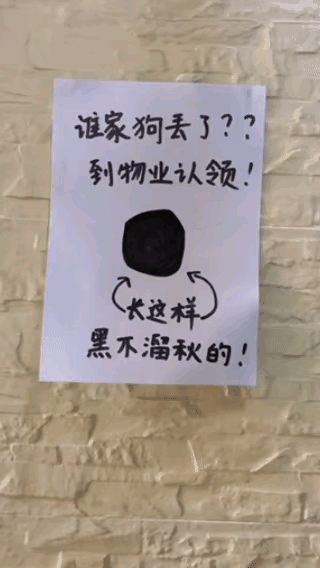 谁家狗丢了??
到物业认领!
长这样
黑不溜秋的!